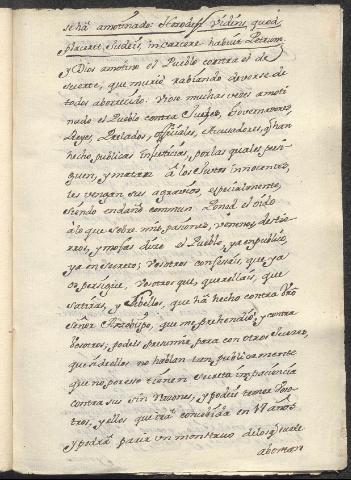 se hà amotinado. Herodes, Videns quod
placeret Judeis, in carcere habuit Petrum
y Dios amotinò el Pueblo contra el de
suerte, que muriò rabiando de verse de
todos aborrecido: Viose muchas vezes amoti
nado el Pueblo contra Juezes, Governadores,
Reyes, Prelados, officiales, Acusadores, q̃ han
hecho publicas Injusticias, por las quales persi-
guen, y matan à los Justos innocentes,
les vengan sus agravios, especialmente,
siendo en daño commun. Poned el oido
à lo que sobre mis pasiones, venenos, destier
ros, y mofas dize el Pueblo, ya en publico,
ya en secreto; Vosotros confesais, que ya
os persigue, Vosotros que, querellais, que
satiras, y libellos, que hà hecho contra Vro
Señor Arzobispo, que me prehendiò, y contra
Vosotros; podeis presumir, para con otros Juezes,
que si de ellos no hablan tan publicamente
que no por esto tienen suelta impaciencia
contra sus sin razones, y podeis temer Voso
tros, y ellos que irà concebida en 17 años
y podrà parir un monstruo de los q̃ suele
abortar